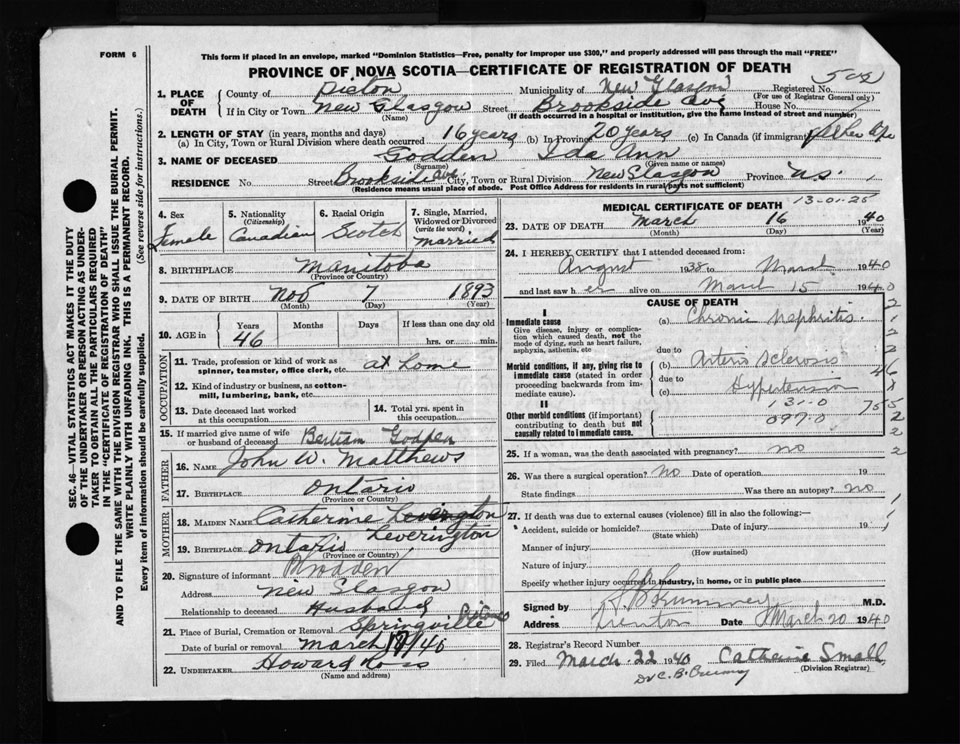 FORM 6
This form if placed in an envelope, marked "Dominion Statistics—Free, penalty for improper use $300," and properly addressed will pass through the mail "FREE"
PROVINCE OF NOVA SCOTIA—CERTIFICATE OF REGISTRATION OF DEATH
1. PLACE OF DEATH County of Pictou Municipality of New Glasgow Registered No.
(For use of Registrar General only)
If in City or Town New Glasgow Street Brookside Ave House No.
(Name) (If death occurred in a hospital or institution, give the name instead of street and number)
2. LENGTH OF STAY (in years, months and days)
(a) In City, Town or Rural Division where death occurred 16 years (b) In Province 20 years (c) In Canada (if immigrant)
3. NAME OF DECEASED Godden Ida Ann
(Surname) (Given name or names)
RESIDENCE No. Street Brookside Ave City, Town or Rural Division New Glasgow Province N.S.
(Residence means usual place of abode. Post Office Address for residents in rural parts not sufficient)
SEC. 46—VITAL STATISTICS ACT MAKES IT THE DUTY
OF THE UNDERTAKER OR PERSON ACTING AS UNDER-
TAKER TO OBTAIN ALL THE PARTICULARS REQUIRED
IN THE "CERTIFICATE OF REGISTRATION OF DEATH"
AND TO FILE THE SAME WITH THE DIVISION REGISTRAR WHO SHALL ISSUE THE BURIAL PERMIT.
WRITE PLAINLY WITH UNFADING INK. THIS IS A PERMANENT RECORD.
Every item of information should be carefully supplied. (See reverse side for instructions.)
4. Sex Female
5. Nationality (Citizenship) Canadian
6. Racial Origin Scotch
7. Single, Married, Widowed or Divorced (write the word) married
8. BIRTHPLACE Manitoba
(Province or Country)
9. DATE OF BIRTH Nov 7 1893
(Month) (Day) (Year)
10. AGE in Years Months Days If less than one day old
46 hrs. or min.
OCCUPATION
11. Trade, profession or kind of work as spinner, teamster, office clerk, etc. at home
12. Kind of industry or business, as cotton-mill, lumbering, bank, etc.
13. Date deceased last worked at this occupation
14. Total yrs. spent in this occupation
15. If married give name of wife or husband of deceased Bertram Godden
FATHER
16. NAME John W. Matthews
17. BIRTHPLACE Ontario
(Province or Country)
MOTHER
18. MAIDEN NAME Catherine Leverington
Leverington
19. BIRTHPLACE Ontario
(Province or Country)
20. Signature of informant
Address New Glasgow
Relationship to deceased Husband
21. Place of Burial, Cremation or Removal Springville
Date of burial or removal March 18/40
22. UNDERTAKER Howard Ross
(Name and address)
MEDICAL CERTIFICATE OF DEATH 13-01-25
23. DATE OF DEATH March 16 1940
(Month) (Day) (Year)
24. I HEREBY CERTIFY that I attended deceased from:
August 1938 to March 1940
and last saw her alive on March 15 1940
CAUSE OF DEATH
I
Immediate cause (a) Chronic Nephritis
Give disease, injury or complication which caused death, not the mode of dying, such as heart failure, asphyxia, asthenia, etc
due to
Morbid conditions, if any, giving rise to immediate cause (stated in order proceeding backwards from immediate cause). (b) Arterio Sclerosis
due to
(c) Hypertension
II
131.0
097.0
755
Other morbid conditions (if important) contributing to death but not causally related to immediate cause.
25. If a woman, was the death associated with pregnancy? no
26. Was there a surgical operation? no Date of operation 19
State findings Was there an autopsy? no
27. If death was due to external causes (violence) fill in also the following:—
Accident, suicide or homicide? Date of injury 19
(State which)
Manner of injury
(How sustained)
Nature of injury
Specify whether injury occurred in industry, in home, or in public place
Signed by M.D.
Address Trenton Date March 20 1940
28. Registrar's Record Number
29. Filed March 22 1940 Catharine Small
(Division Registrar)